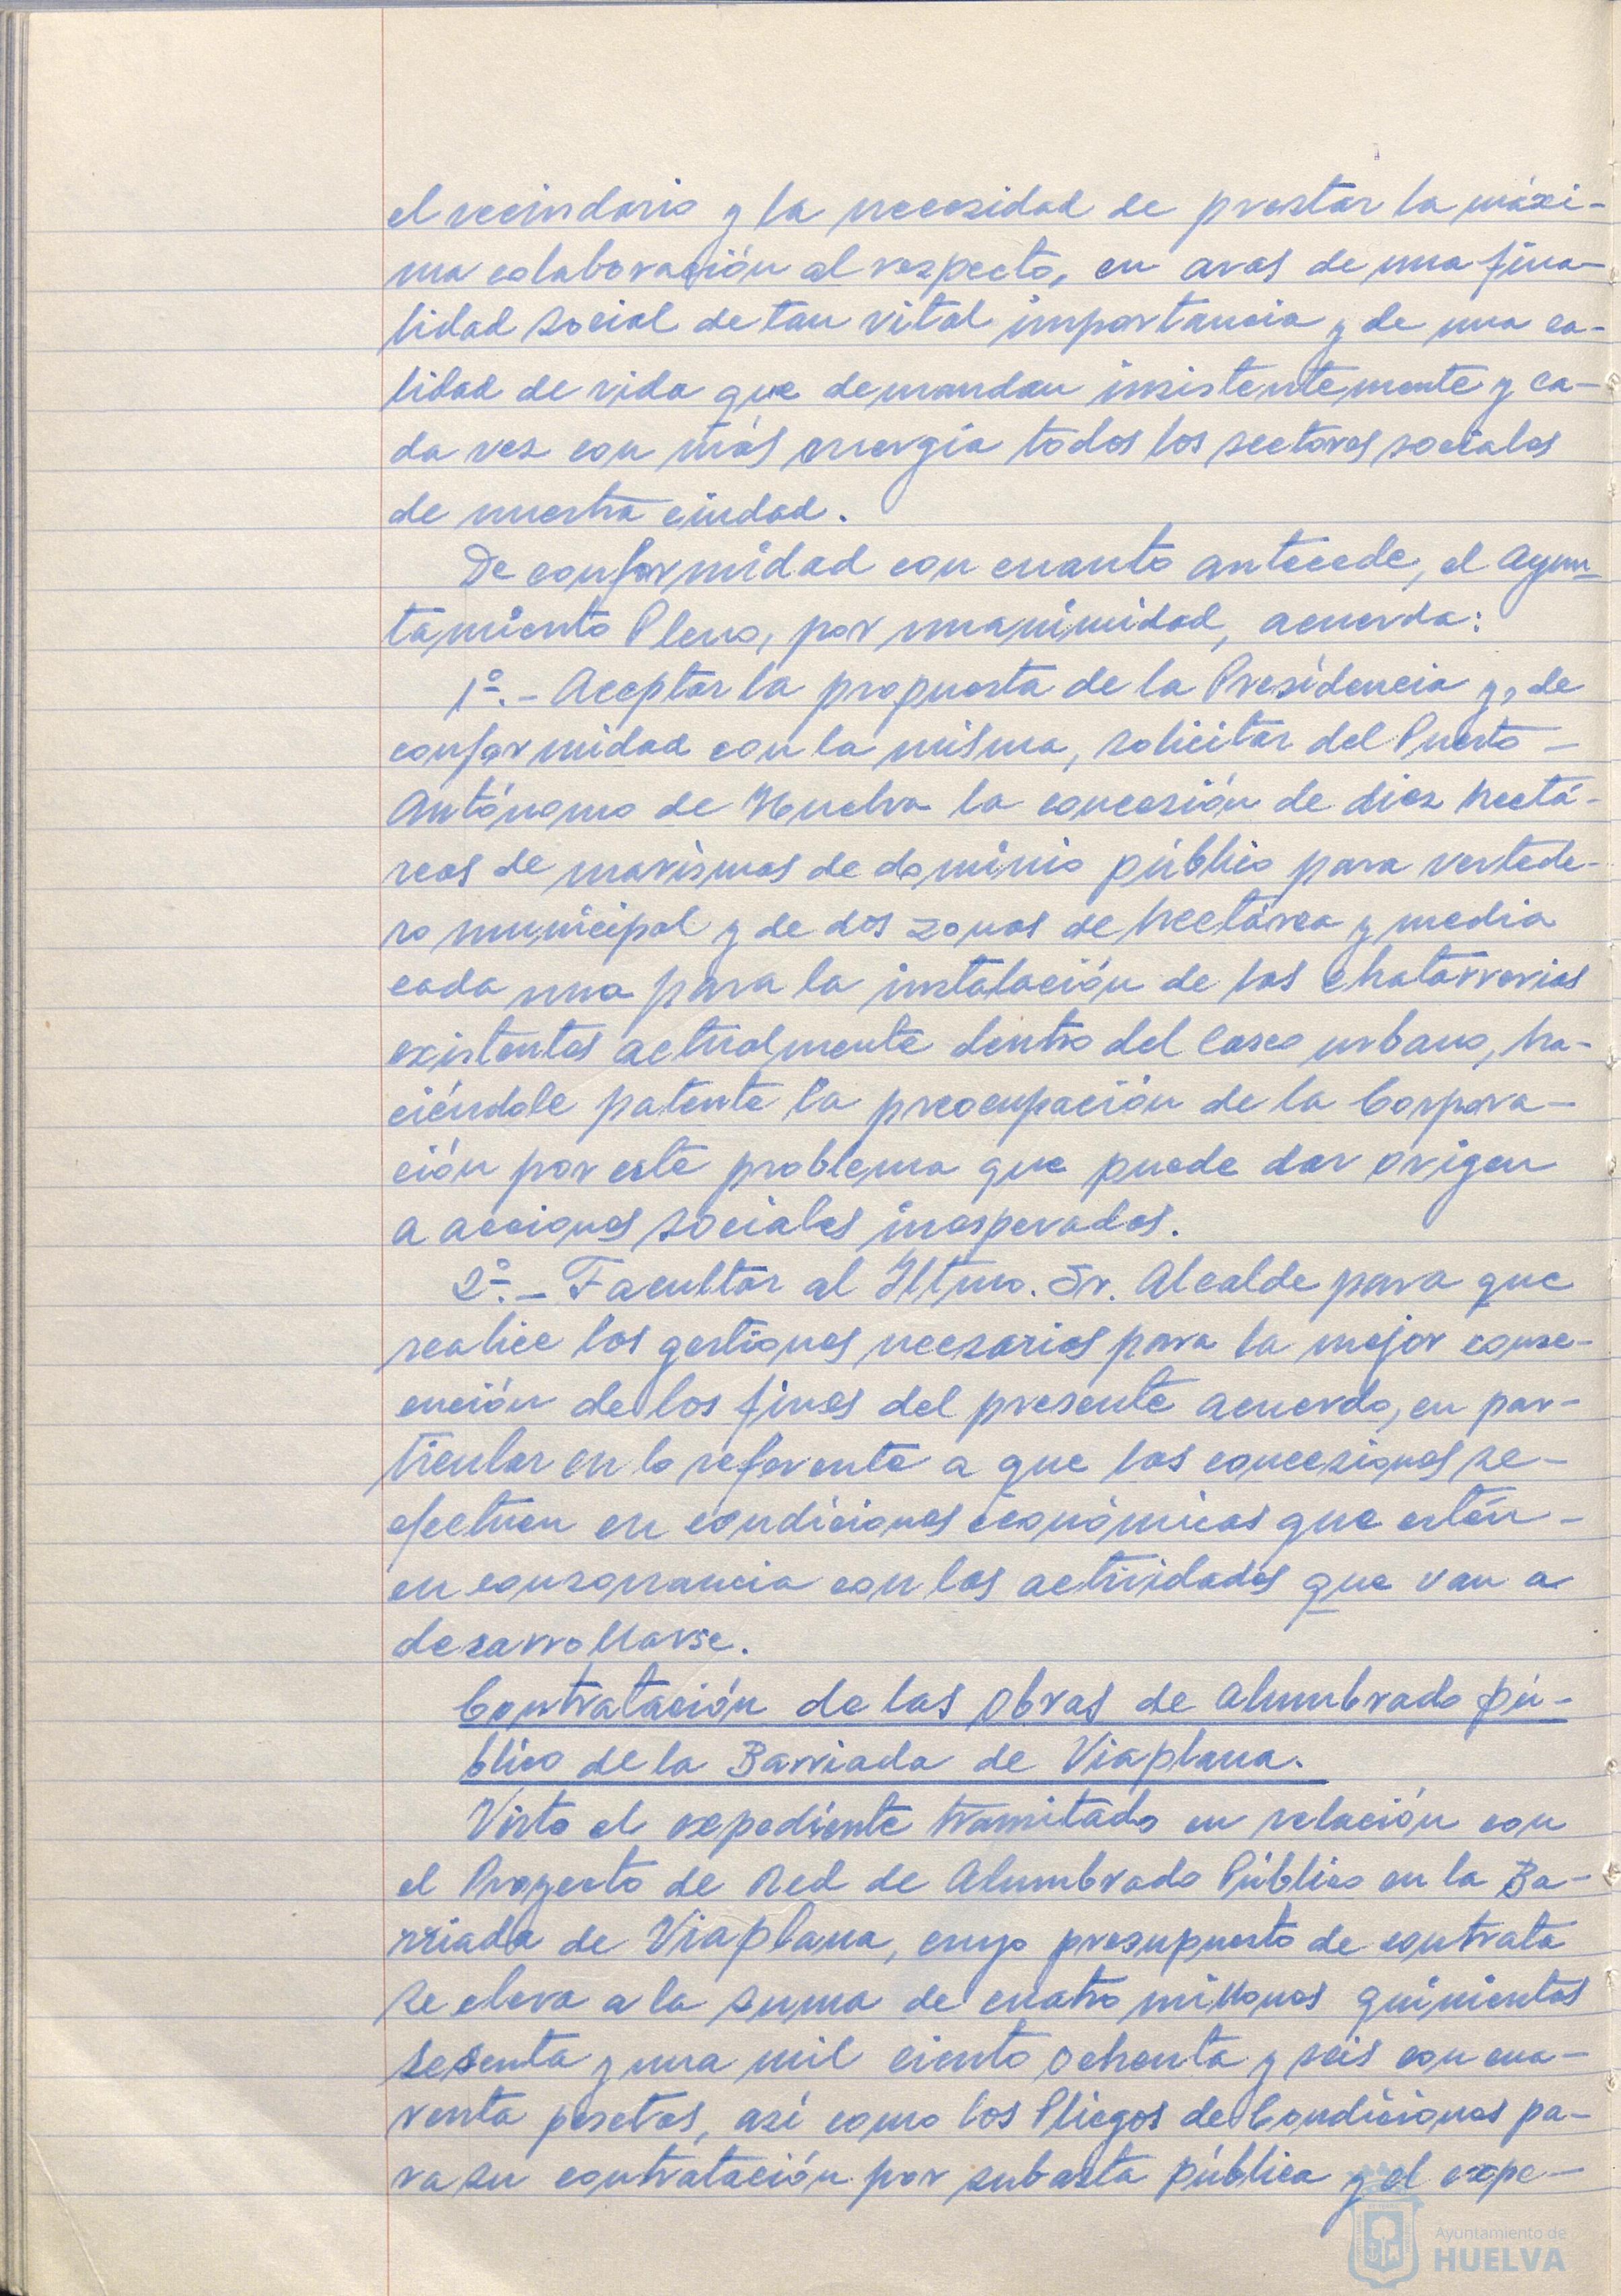 el vecindario y la necesidad de prestar la máxi-
ma colaboración al respecto, en aras de una fina-
lidad social de tan vital importancia y de una ca-
lidad de vida que demandan insistentemente y ca-
da vez con más energía todos los sectores sociales
de nuestra ciudad.
De conformidad con cuanto antecede, el Ayun-
tamiento Pleno, por unanimidad, acuerda:
1º.- Aceptar la propuesta de la Presidencia y, de
conformidad con la misma, solicitar del Puerto -
Autónomo de Huelva la concesión de diez hectá-
reas de marismas de dominio público para vertede-
ro municipal y de dos zonas de hectárea y media
cada una para la instalación de las chatarrerias
existentes actualmente dentro del casco urbano, ha-
ciéndole patente la preocupación de la Corpora-
ción por este problema que puede dar origen
a acciones sociales inesperadas.
2º.- Facultar al Iltmo. Sr. Alcalde para que
realice las gestiones necesarias para la mejor conse-
cución de los fines del presente acuerdo, en par-
ticular en lo referente a que las concesiones se -
efectuen en condiciones económicas que estén -
en consonancia con las actividades que van a
desarrollarse.
Contratación de las obras de alumbrado pú-
blico de la Barriada de Viaplana.
Visto el expediente tramitado en relación con
el Proyecto de Red de Alumbrado Público en la Ba-
rriada de Viaplana, cuyo presupuesto de contrata
se eleva a la suma de cuatro millones quinientas
sesenta y una mil ciento ochenta y seis con cua-
renta pesetas, así como los Pliegos de Condiciones pa-
ra su contratación por subasta pública y el expe-
Ayuntamiento de
HUELVA